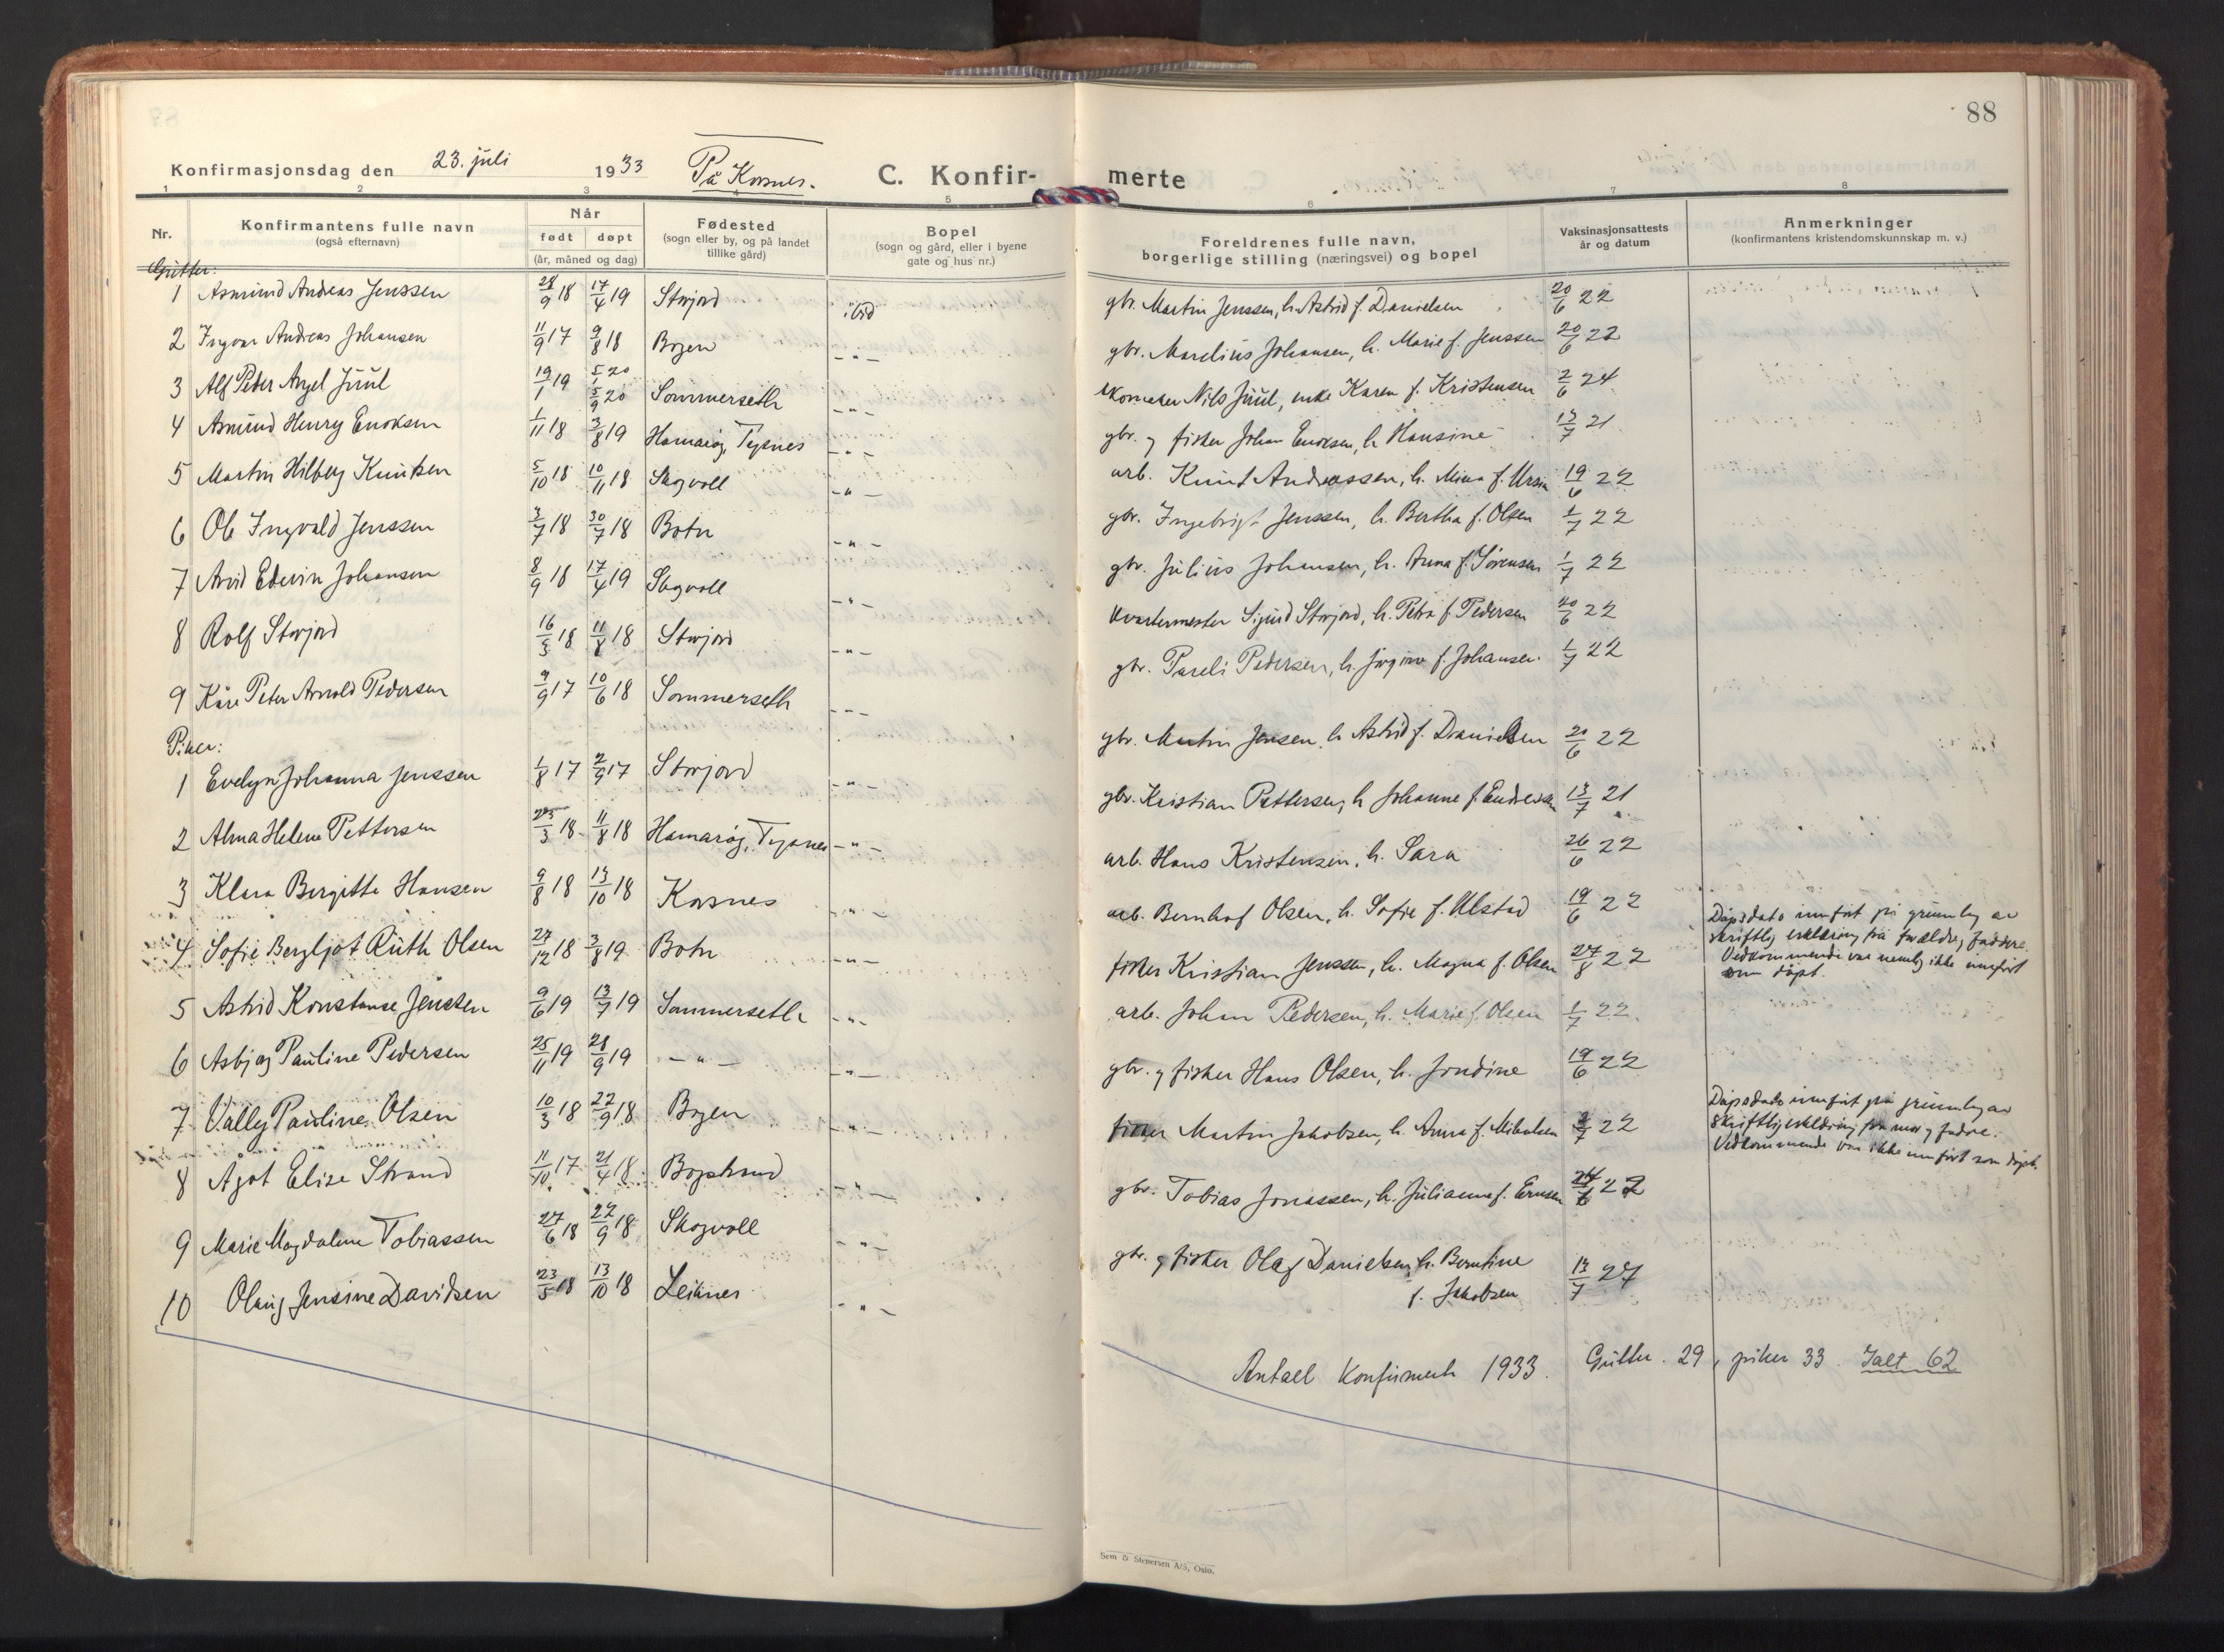 88
Konfirmasjonsdag den 23. juli 1933 På Korsnes. C. Konfir-
merte
1 2 3 4 5 6 7 8
Nr. Konfirmantens fulle navn (også efternavn) Når født døpt (år, måned og dag) Fødested (sogn eller by, og på landet tillike gård) Bopel (sogn og gård, eller i byene gate og hus nr.) Foreldrenes fulle navn, borgerlige stilling (næringsvei) og bopel Vaksinasjonsattests år og datum Anmerkninger (konfirmantens kristendomskunnskap m. v.)
Gutter:
1 Asmund Andreas Jenssen 28/9 18 17/4 19 Storjord ibid gbr. Martin Jenssen, h. Astrid f. Danielsen 20/6 22
2 Ingvar Andreas Johansen 11/9 17 9/8 18 Bogen -"- gbr. Marelius Johansen, h. Marie f. Jenssen 20/6 22
3 Alf Peter Angel Juul 19/1 19 5/1 20 5/9 20 Sommerseth -"- skomaker Nils Juul, enke Karen f. Kristensen 2/6 24
4 Asmund Henry Enoksen 1/11 18 3/8 19 Hamarøy, Tysnes -"- gbr. y fisker Johan Enoksen, h. Hansine 13/7 21
5 Martin Hilberg Knutsen 5/10 18 10/11 18 Skogvoll -"- arb. Knut Andreassen, h. Mina f. Ursin 19/6 22
6 Ole Ingvald Jenssen 3/7 18 30/7 18 Botn -"- gbr. Ingebrigt Jenssen, h. Bertha f. Olsen 1/7 22
7 Arvid Edevin Johansen 8/9 18 17/4 19 Skogvoll -"- gbr. Julius Johansen, h. Anna f. Sørensen 1/7 22
8 Rolf Storjord 16/3 18 11/8 18 Storjord -"- kvartermester Sigurd Storjord, h. Petra f. Pedersen 20/6 22
9 Kåre Peter Arnold Pedersen 9/9 17 10/6 18 Sommerseth -"- gbr. Pareli Pedersen, h. Jørgine f. Johansen. 1/7 22
Piker:
1 Evelyn Johanna Jenssen 1/8 17 2/9 17 Storjord -"- gbr. Martin Jensen, h. Astrid f. Danielsen 20/6 22
2 Alma Helene Pettersen 23/3 18 11/8 18 Hamarøy, Tysnes -"- gbr. Kristian Pettersen, h. Johanne f. Endresen 13/7 21
3 Klara Bergitte Hansen 9/8 18 13/10 18 Korsnes -"- arb. Hans Kristensen, h. Sara 26/6 22
4 Sofie Bergljot Ruth Olsen 27/12 18 3/8 19 Botn -"- arb. Bernhof Olsen, h. Sofie f. Ulstad 19/6 22
Dåpsdato innført på grunnlag av
skriftlig erklæring fra foreldre y faddere.
Vedkommende var nemlig ikke innført
som døpt.
5 Astrid Konstanse Jenssen 9/6 19 13/7 19 Sommerseth -"- fisker Kristian Jenssen, h. Magna f. Olsen 27/8 22
6 Asbjørg Pauline Pedersen 25/11 19 28/9 19 -"- -"- arb. Johan Pedersen, h. Marie f. Olsen 1/7 22.
7 Vally Pauline Olsen 10/3 18 22/9 18 Bogen -"- gbr. y fisker Hans Olsen, h. Jondine 19/6 22
8 Ågot Elise Strand 11/10 17 21/4 18 Bogstrand -"- fisker Martin Jakobsen, h. Anna f. Mikalsen 3/7 22
Dåpsdato innført på grunnlag av
skriftlig erklæring fra mor y faddere.
Vedkommende var ikke innført som døpt.
9 Marie Magdalene Tobiassen 27/6 18 22/9 18 Skogvoll -"- gbr. Tobias Jonassen, h. Julianne f. Ernsen 22
10 Olaug Jensine Davidsen 23/5 18 13/10 18 Leiknes -"- gbr. y fisker Olaf Danielsen, h. Berntine
f. Jakobsen 13/7 27
Antall konfirmerte 1933. Gutter. 29, piker 33. Ialt 62
Sem & Stenersen A/S, Oslo.